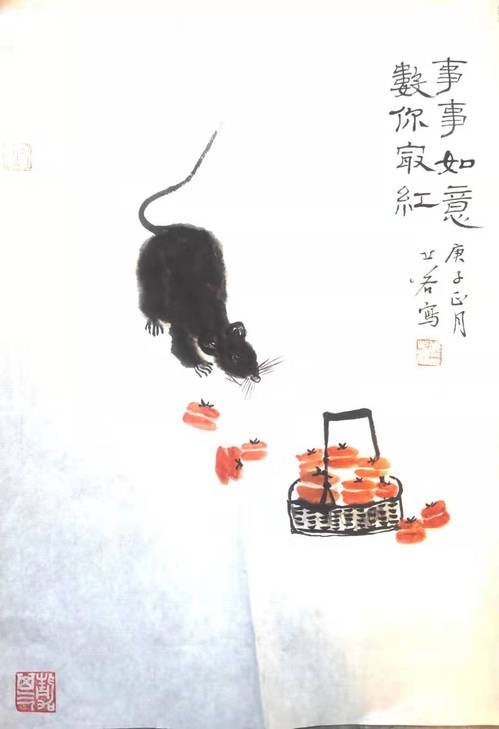 事事如意
數你㝡紅
庚子正月
寫